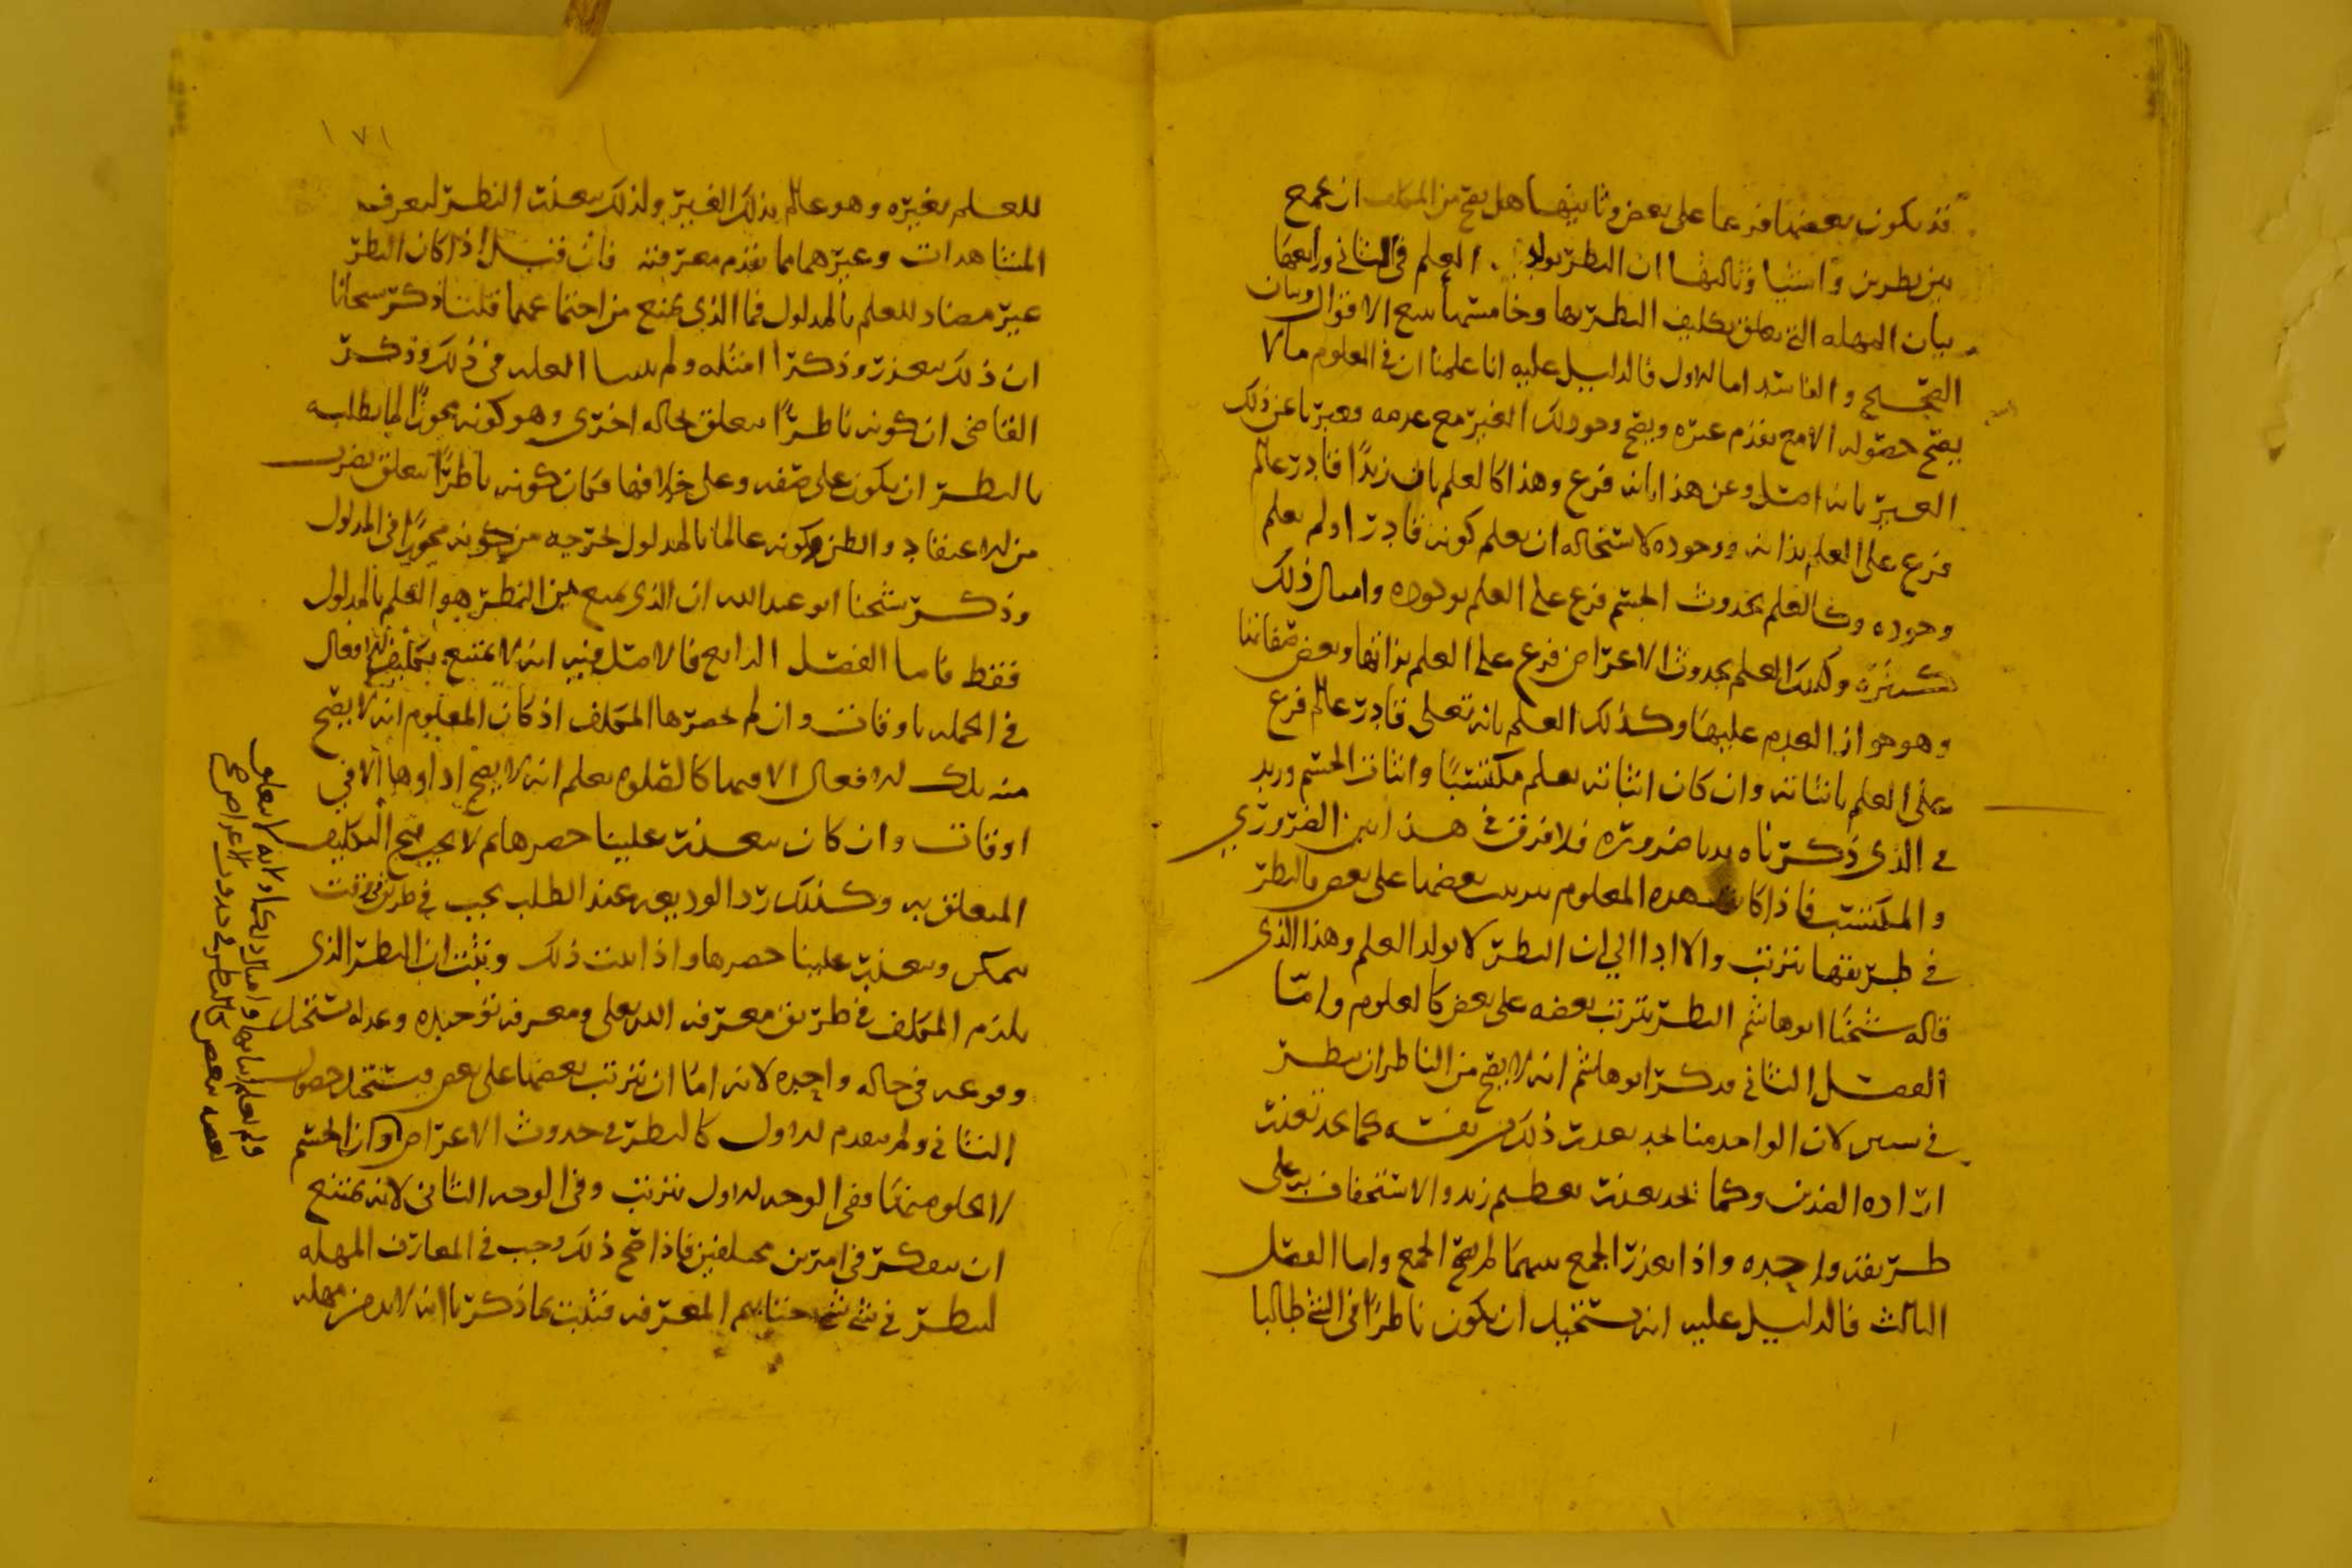 قد يكون بعضها فرعا على بعض وثانيها هل يصح من المكلف ان يجمع
بين نظرين واشيا وثالثها ان النظر يولد العلم في الثاني ورابعها
بيان المهله التي يتعلق تكليف النظر بها وخامسها تتبع الاقوال وبيان
الصحيح والفاسد اما الاول فالدليل عليه انا علمنا ان في المعلوم مالا
يصح حصوله الا مع تقدم غيره ويصح وجود ذلك الغير مع عدمه وعبرنا عن ذلك
الغير بانه اصل وعن هذا بانه فرع وهذا كالعلم بان زيدا قادر عالم
فرع على العلم بذاته ووجوده لاستحاله ان يعلم كونه قادرا ولم يعلم
وجوده وكالعلم بحدوث الجسم فرع على العلم بوجوده وامثال ذلك
كثيره وكذلك العلم بحدوث الاعراض فرع على العلم بذاتها وبعض صفاتها
وهو جواز العدم عليها وكذلك العلم بانه تعلى قادر عالم فرع
على العلم باثباته وان كان اثباته يعلم مكتسبا واثبات الجسم وزيد
في الذي ذكرناه بدا ضروره فلا فرق في هذا بين الضروري
والمكتسب فاذا كانت هذه المعلوم يترتب بعضها على بعض فالنظر
في طريقها يترتب والا ادا الي ان النظر لا يولد العلم وهذا الذي
قاله شيخنا ابو هاشم النظر يترتب بعضه على بعض كالعلوم واما
الفصل الثاني فذكر ابو هاشم انه لا يصح من الناظر ان ينظر
في سيين لان الواحد منا يجد تعذر ذلك من نفسه كما يجد تعذر
اراده الضدين وكما يجد تعذر تعظيم زيد والاستخفاف به على
طريقه واحده واذا تعذر الجمع بينهما لم يصح الجمع واما الفصل
الثالث فالدليل عليه انه يستحيل ان يكون ناظرا في الشي طالبا
١٧١
للعلم بغيره وهو عالم بذلك الغير ولذلك يتعذر النظر لتعرف
المشاهدات وغيرهما مما تقدم معرفته فان قيل اذا كان النظر
غير مضاد للعلم بالمدلول فما الذي يمنع من اجتماعهما قلنا ذكر شيخانا
ان ذلك يتعذر وذكرا امثله ولم يبينا العله في ذلك وذكر
القاضي ان كونه ناظرا يتعلق بحاله اخرى وهو كونه مجوزا لما يطلبه
بالنظر ان يكون على صفه وعلى خلافها فكان كونه ناظرا يتعلق بضرب
من الاعتقاد والظن وكونه عالما بالمدلول يخرجه من كونه مجوزا في المدلول
وذكر شيخنا ابو عبد الله ان الذي يمنع من النظر هو العلم بالمدلول
فقط فاما الفصل الرابع فالاصل فيه انه لا يمتنع تكليف الافعال
في الجمله باوقات وان لم يحصرها المكلف اذ كان المعلوم انه لا يصح
منه تلك الافعال الا فيها كالصلوه يعلم انه لا يصح اداوها الا في
اوقات وان كان يتعذر علينا حصرها ثم لا يجب قبح التكليف
المتعلق به وكذلك رد الوديعه عند الطلب يجب في طريق وقت
يمكن ويتعذر علينا حصرها واذا ثبت ذلك وثبت ان النظر الذي
يلزم المكلف في طريق معرفه الله تعلى ومعرفه توحيده وعدله يستحيل
وقوعه في حاله واحده لانه اما ان يترتب بعضها على بعض فيستحيل حصول
الثاني ولم يتقدم الاول كالنظر في حدوث الاعراض وان الجسم
لا يخلو منها ففي الوجه الاول يترتب وفي الوجه الثاني لانه يمتنع
ان يفكر في امرين مختلفين فاذا صح ذلك وجب في المعارف المهله
لينظر في شي شي حتى تتم المعرفه فثبت بما ذكرنا انه لا بد من مهله